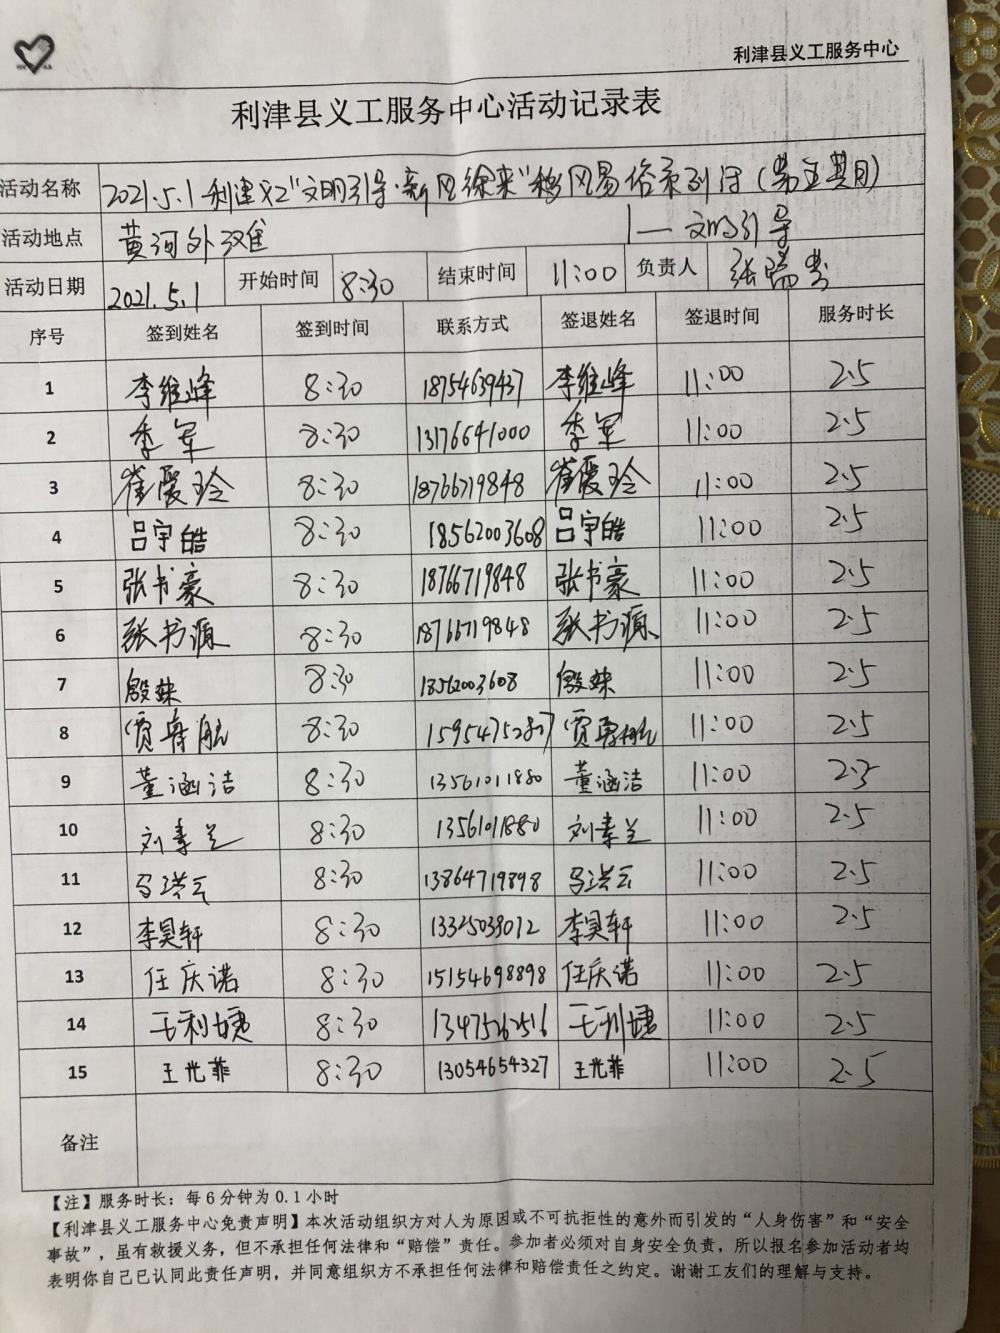 利津县义工服务中心
利津县义工服务中心活动记录表
活动名称 2021.5.1利津义工"文明引导·新风徐来"移风易俗系列活(第五期)
活动地点 黄河外滩 |—文明引导
活动日期 2021.5.1 开始时间 8:30 结束时间 11:00 负责人 张瑞
序号 签到姓名 签到时间 联系方式 签退姓名 签退时间 服务时长
1 李维峰 8:30 18754639437 李维峰 11:00 2.5
2 李军 8:30 13176641000 李军 11:00 2.5
3 崔爱玲 8:30 18766719848 崔爱玲 11:00 2.5
4 吕宇皓 8:30 18562003608 吕宇皓 11:00 2.5
5 张书豪 8:30 18766719848 张书豪 11:00 2.5
6 张书源 8:30 18766719848 张书源 11:00 2.5
7 殷姝 8:30 18562003608 殷姝 11:00 2.5
8 贾舜航 8:30 15954752807 贾舜航 11:00 2.5
9 董涵洁 8:30 13561011880 董涵洁 11:00 2.5
10 刘素兰 8:30 13561011880 刘素兰 11:00 2.5
11 马洪云 8:30 13864719898 马洪云 11:00 2.5
12 李昊轩 8:30 13325038012 李昊轩 11:00 2.5
13 任庆诺 8:30 15154698898 任庆诺 11:00 2.5
14 王利婕 8:30 13475262516 王利婕 11:00 2.5
15 王光菲 8:30 13054654327 王光菲 11:00 2.5
备注
【注】服务时长：每6分钟为0.1小时
【利津县义工服务中心免责声明】本次活动组织方对人为原因或不可抗拒性的意外而引发的“人身伤害”和“安全
事故”，虽有救援义务，但不承担任何法律和“赔偿”责任。参加者必须对自身安全负责，所以报名参加活动者均
表明你自己已认同此责任声明，并同意组织方不承担任何法律和赔偿责任之约定。谢谢工友们的理解与支持。